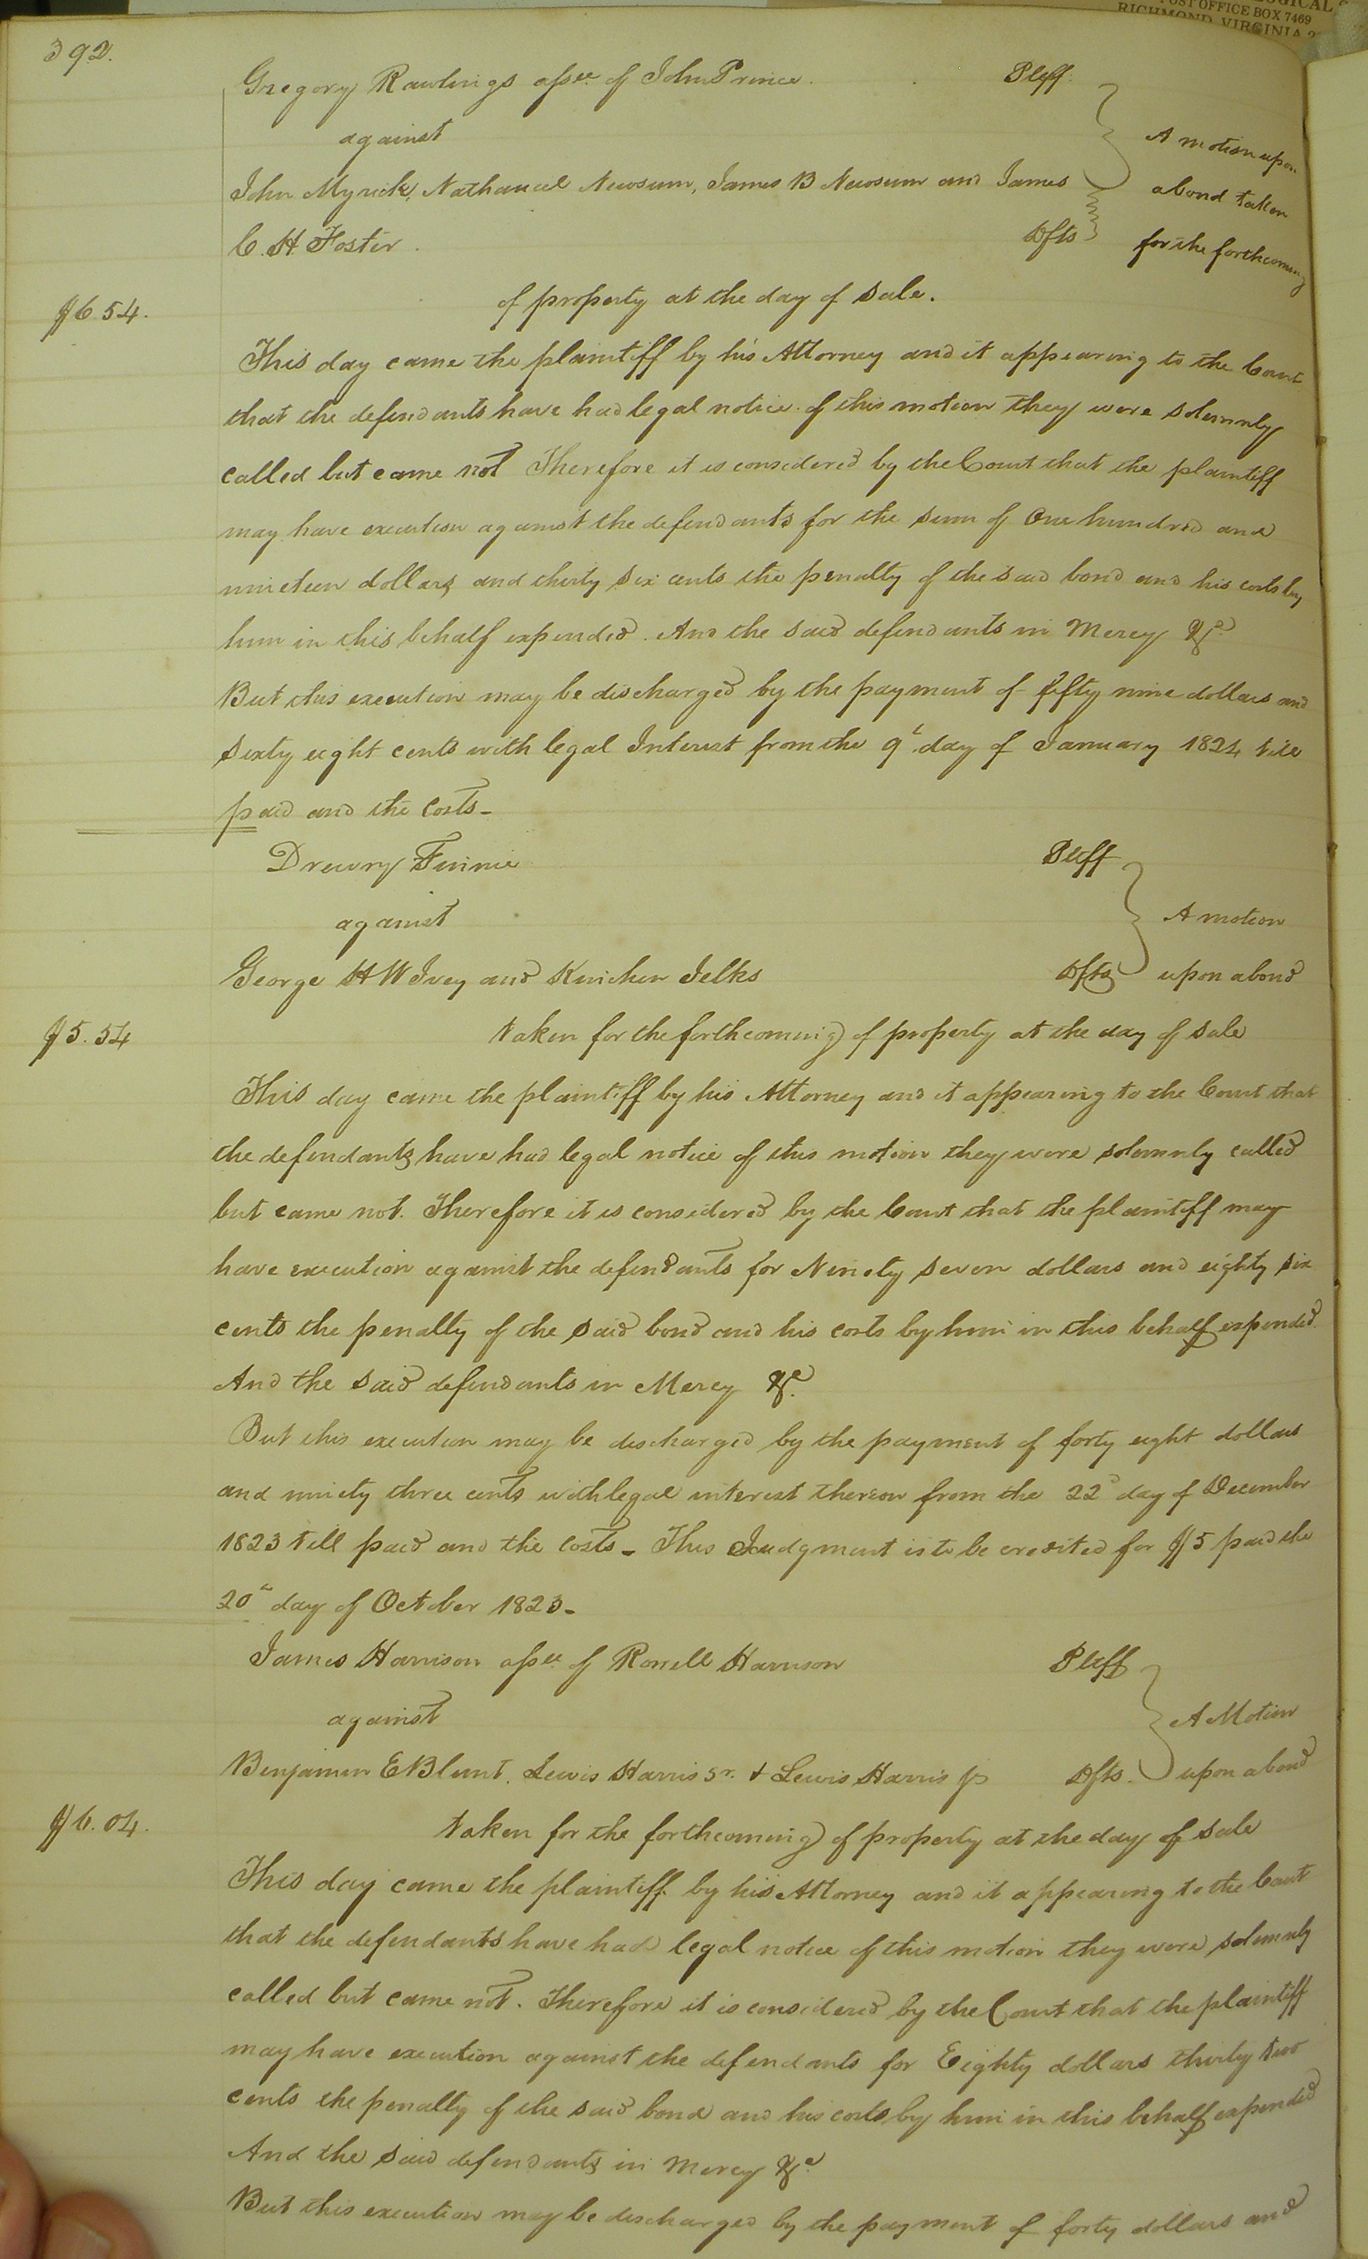 OGICAL
POST OFFICE BOX 7469
RICHMOND, VIRGINIA 2
392.
Gregory Rawlings assee of John Prince Pltff
against
A motion upon
John Myrick, Nathaniel Newsum, James B Newsum and James
a bond taken
C. H. Foster Dfts
for the forthcoming
of property at the day of sale.
$6.54.
This day came the plaintiff by his Attorney and it appearing to the Court
that the defendants have had legal notice of this motion they were solemnly
called but came not Therefore it is considered by the Court that the plaintiff
may have execution against the defendants for the sum of One hundred and
nineteen dollars and thirty six cents the penalty of the said bond and his costs by
him in this behalf expended. And the said defendants in Mercy &c.
But this execution may be discharged by the payment of fifty nine dollars and
sixty eight cents with legal Interest from the 9t day of January 1824 till
paid and the Costs-
Drewry Finnie Pltff
against
A motion
George H W Ivey and Kinchen Jelks Dfts upon a bond
$5.54
taken for the forthcoming of property at the day of sale
This day came the plaintiff by his Attorney and it appearing to the Court that
the defendants have had legal notice of this motion they were solemnly called
but came not. Therefore it is considered by the Court that the plaintiff may
have execution against the defendants for Ninety seven dollars and eighty six
cents the penalty of the said bond and his costs by him in this behalf expended.
And the said defendants in Mercy &c.
But this execution may be discharged by the payment of forty eight dollars
and ninety three cents with legal interest thereon from the 22d day of December
1823 till paid and the Costs- This Judgment is to be credited for $5 paid the
20th day of October 1823-
James Harrison assee of Harrison Pltff
against
A Motion
Benjamin E Blunt, Lewis Harris Sr. & Lewis Harris jr Dfts. upon a bond
$6.04.
taken for the forthcoming of property at the day of sale
This day came the plaintiff by his Attorney and it appearing to the Court
that the defendants have had legal notice of this motion they were solemnly
called but came not. Therefore it is considered by the Court that the plaintiff
may have execution against the defendants for Eighty dollars thirty two
cents the penalty of the said bond and his costs by him in this behalf expended
And the said defendants in Mercy &c.
But this execution may be discharged by the payment of forty dollars and